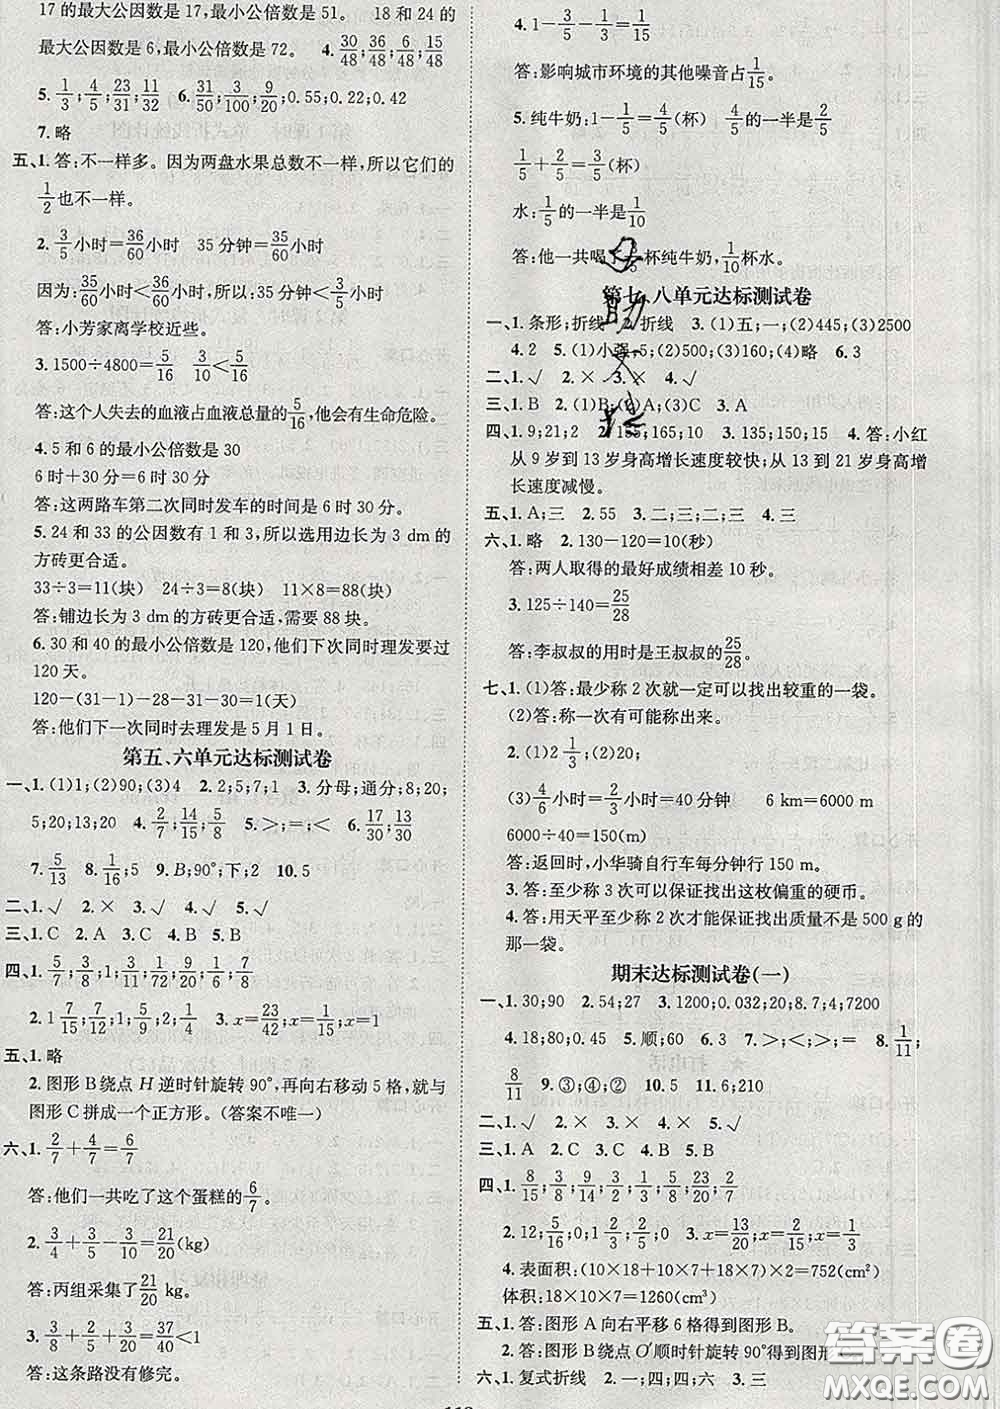 17 的最大公因数是 17,最小公倍数是 51。 18 和 24 的
最大公因数是 6,最小公倍数是 72。 4. 30/48;36/48;6/48;15/48
5. 1/3;4/5;23/31;11/32 6. 31/50;3/100;9/20;0.55;0.22;0.42
7. 略
五、1. 答:不一样多。因为两盘水果总数不一样,所以它们的
1/2也不一样。
2. 3/5小时=36/60小时 35 分钟=35/60小时
因为:35/60小时<36/60小时
答:小芳家离学校近些。
3. 1500÷4800=5/16 3/10<5/16
答:这个人失去的血液占血液总量的5/16,会有生命危险。
4. 5 和 6 的最小公倍数是 30
6 时+30 分=6 时 30 分
答:这两路车第二次同时发车的时间是 6 时 30 分。
5. 24 和 33 的公因数有 1 和 3,所以选用边长为 3 dm 的
方砖更合适。
33÷3=11(块) 24÷3=8(块) 11×8=88(块)
答:铺边长为 3 dm 的方砖更合适,需要 88 块。
6. 30 和 40 的最小公倍数是 120,他们下次同时理发要过
120 天。
120-(31-1)-28-31-30=1(天)
答:他们下一次同时去理发是 5 月 1 日。
第五、六单元达标测试卷
一、1. (1)1;(2)90;(3)4 2. 2;5;7;1 3. 分母;通分;8;20;
5;20;13;20 4. 2/7;14/15;5/8 5. >;=;< 6. 17/30;13/30
7. 5/13 8. 5/16 9. B;90°;下;2 10. 5
二、1. √ 2. × 3. × 4. √ 5. √
三、1. C 2. A 3. C 4. B 5. B
四、1. 5/7;3/7;3/1;12/72;9/20;1/6;1/7;7/8
2. 1 7/15;7/12;5/9;2 4/15 3. x=23/42;x=1/15;x=1
五、1. 略
2. 图形 B 绕点 H 逆时针旋转 90°,再向右移动 5 格,就与
图形 C 拼成一个正方形。(答案不唯一)
六、1. 2/7+4/7=6/7
答:他们一共吃了这个蛋糕的6/7。
2. 3/4+3/5-3/10=21/20(kg)
答:丙组采集了21/20 kg。
3. 1/3+3/5=14/15<1
答:这条路没有修完。
4. 1-1/5-3/5-2/15=1/15
答:影响城市环境的其他噪音占1/15。
5. 纯牛奶:1-1/5=4/5(杯)
1/5+2/5=3/5(杯)
水:1/5的一半是1/10
答:他一共喝了3/5杯纯牛奶,1/10杯水。
第七、八单元达标测试卷
一、1. 条形;折线 2. 折线 3. (1)五;一;(2)445;(3)2500
4. 2 5. (1)小强;5;(2)500;(3)160;(4)略 6. 3
二、1. √ 2. × 3. × 4. √
三、1. B 2. (1)B;(2)A;(3)C 3. A
四、1. 9;21;2 2. 155;165;10 3. 135;150;15 4. 答:小红
从 9 岁到 13 岁身高增长速度较快;从 13 到 21 岁身高增
长速度减慢。
五、1. A;三 2. 55 3. 二;三;三;二 4. 三
六、1. 略 2. 130-120=10(秒)
答:两人取得的最好成绩相差 10 秒。
3. 125÷140=25/28
答:李叔叔的用时是王叔叔的25/28。
七、1. (1)答:最少称 2 次就一定可以找出较重的一袋。
(2)答:称一次有可能称出来。
2. (1)2 1/3;(2)20;
(3)4/6小时=2/3小时=40 分钟 6 km=6000 m
6000÷40=150(m)
答:返回时,小华骑自行车每分钟行 150 m。
3. 答:至少称 3 次可以保证找出这枚偏重的硬币。
4. 答:用天平至少称 2 次才能保证找出质量不是 500 g 的
那一袋。
期末达标测试卷(一)
一、1. 30;90 2. 54;27 3. 1200;0.032;20;8.7;4;7200
4. 18;80;0.45 5. 顺;60 6. 3 7. >;>;<;= 8. 1/11;
8/11 9. ③;④;② 10. 5 11. 6;4
二、1. √ 2. × 3. × 4. × 5. √
三、1. A 2. C 3. C 4. B 5. B
四、1. 8/15;3/8;9/14;3/2;1/6;5/8;23/20;7/9
2. 12;5/6;0;1 1/3 3. x=13/20;x=2/15;x=1/4
4. 表面积:(10×18+10×7+18×7)×2=752(cm²)
体积:18×10×7=1260(cm³)
五、1. 答:图形 A 向右平移 6 格得到图形 B。
2. 答:图形 B 绕点 O′顺时针旋转 90°得到图形 C。
六、1. 复式折线 2. 一;四;四;六 3. 三
答案圈
MXQE.COM